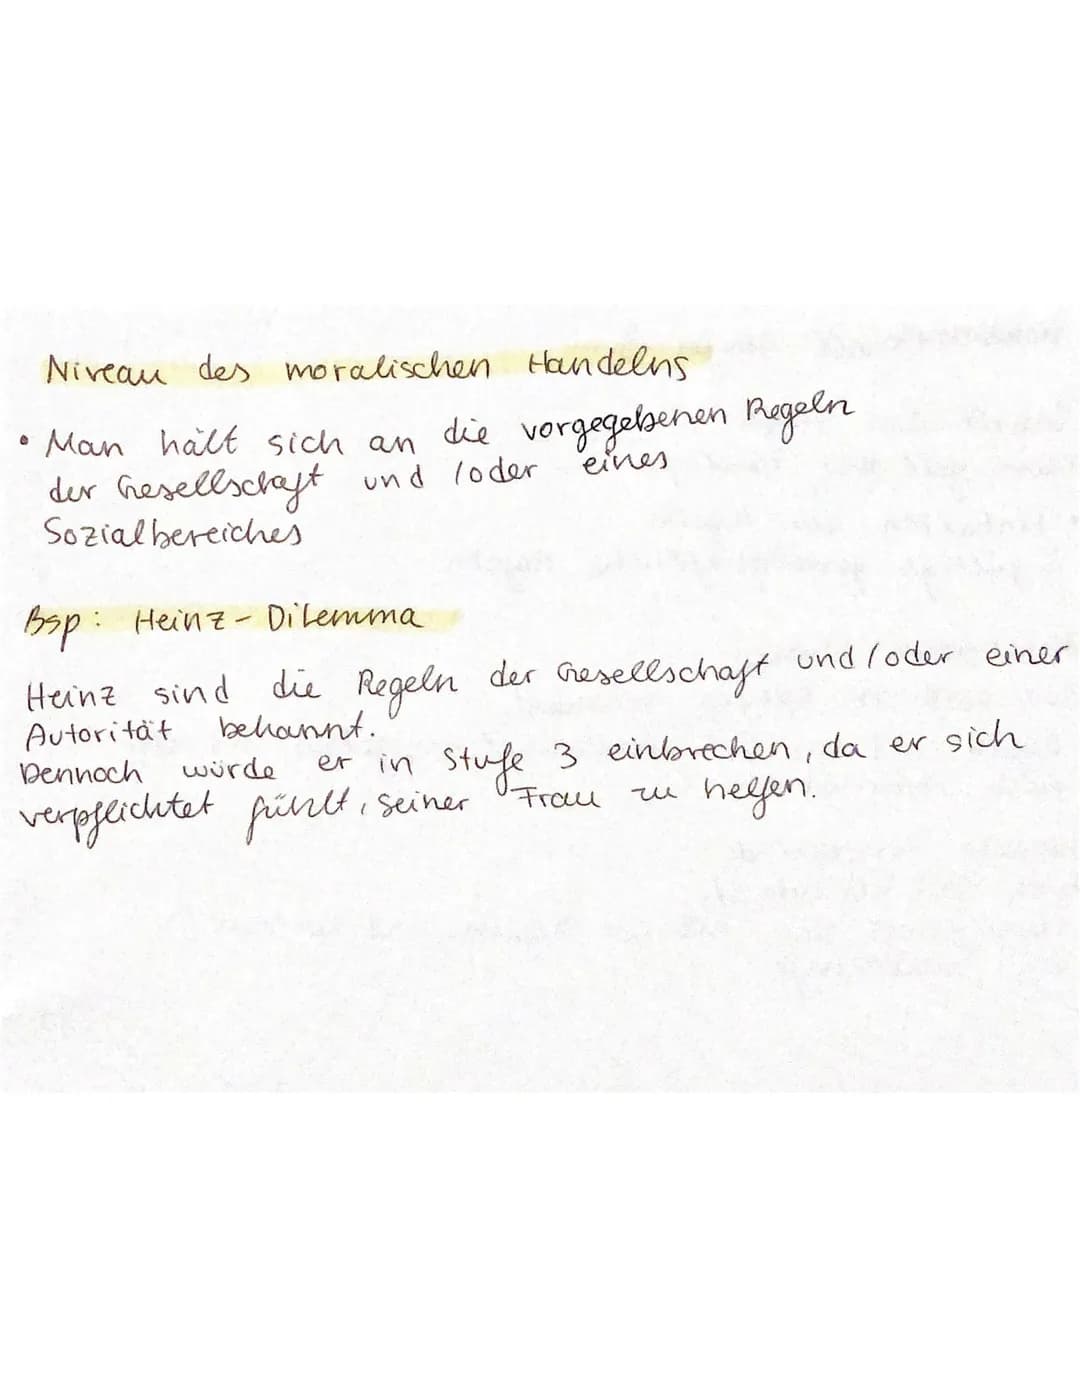 Niveau des moralischen Handelns
• Man hält sich an die vorgegebenen Regeln
der Gesellschaft und /oder eines
Sozialbereiches
Bsp: Heinz-Dilemma
Heinz sind die Regeln der Gesellschaft und/oder einer
Autorität bekannt.
Dennoch würde er in Stufe 3 einbrechen, da er sich
verpflichtet fühlt, seiner Frau zu helfen.